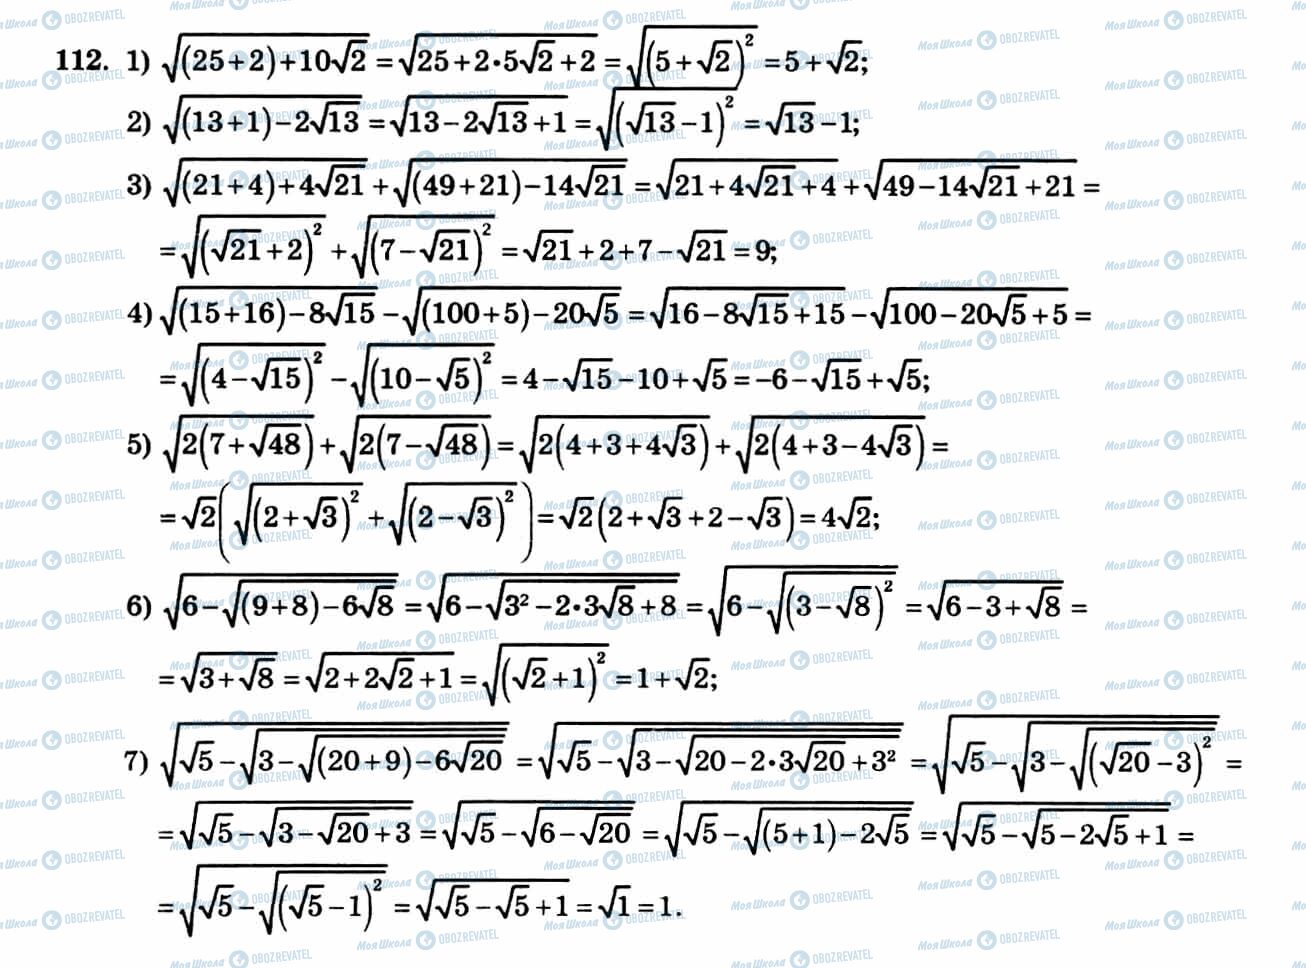 112. 1) √((25+2)+10√2) = √(25+2·5√2+2) = √((5+√2)²) = 5+√2;
2) √((13+1)−2√13) = √(13−2√13+1) = √((√13−1)²) = √13−1;
3) √((21+4)+4√21) + √((49+21)−14√21) = √(21+4√21+4) + √(49−14√21+21) =
= √((√21+2)²) + √((7−√21)²) = √21+2+7−√21 = 9;
4) √((15+16)−8√15) − √((100+5)−20√5) = √(16−8√15+15) − √(100−20√5+5) =
= √((4−√15)²) − √((10−√5)²) = 4−√15−10+√5 = −6−√15+√5;
5) √(2(7+√48)) + √(2(7−√48)) = √(2(4+3+4√3)) + √(2(4+3−4√3)) =
= √2(√((2+√3)²) + √((2−√3)²)) = √2(2+√3+2−√3) = 4√2;
6) √(6−√((9+8)−6√8)) = √(6−√(3²−2·3√8+8)) = √(6−√((3−√8)²)) = √(6−3+√8) =
= √(3+√8) = √(2+2√2+1) = √((√2+1)²) = 1+√2;
7) √(√5−√(3−√((20+9)−6√20))) = √(√5−√(3−√(20−2·3√20+3²))) = √(√5−√(3−√((√20−3)²))) =
= √(√5−√(3−√20+3)) = √(√5−√(6−√20)) = √(√5−√((5+1)−2√5)) = √(√5−√(5−2√5+1)) =
= √(√5−√((√5−1)²)) = √(√5−√5+1) = √1 = 1.
МояШкола OBOZREVATEL